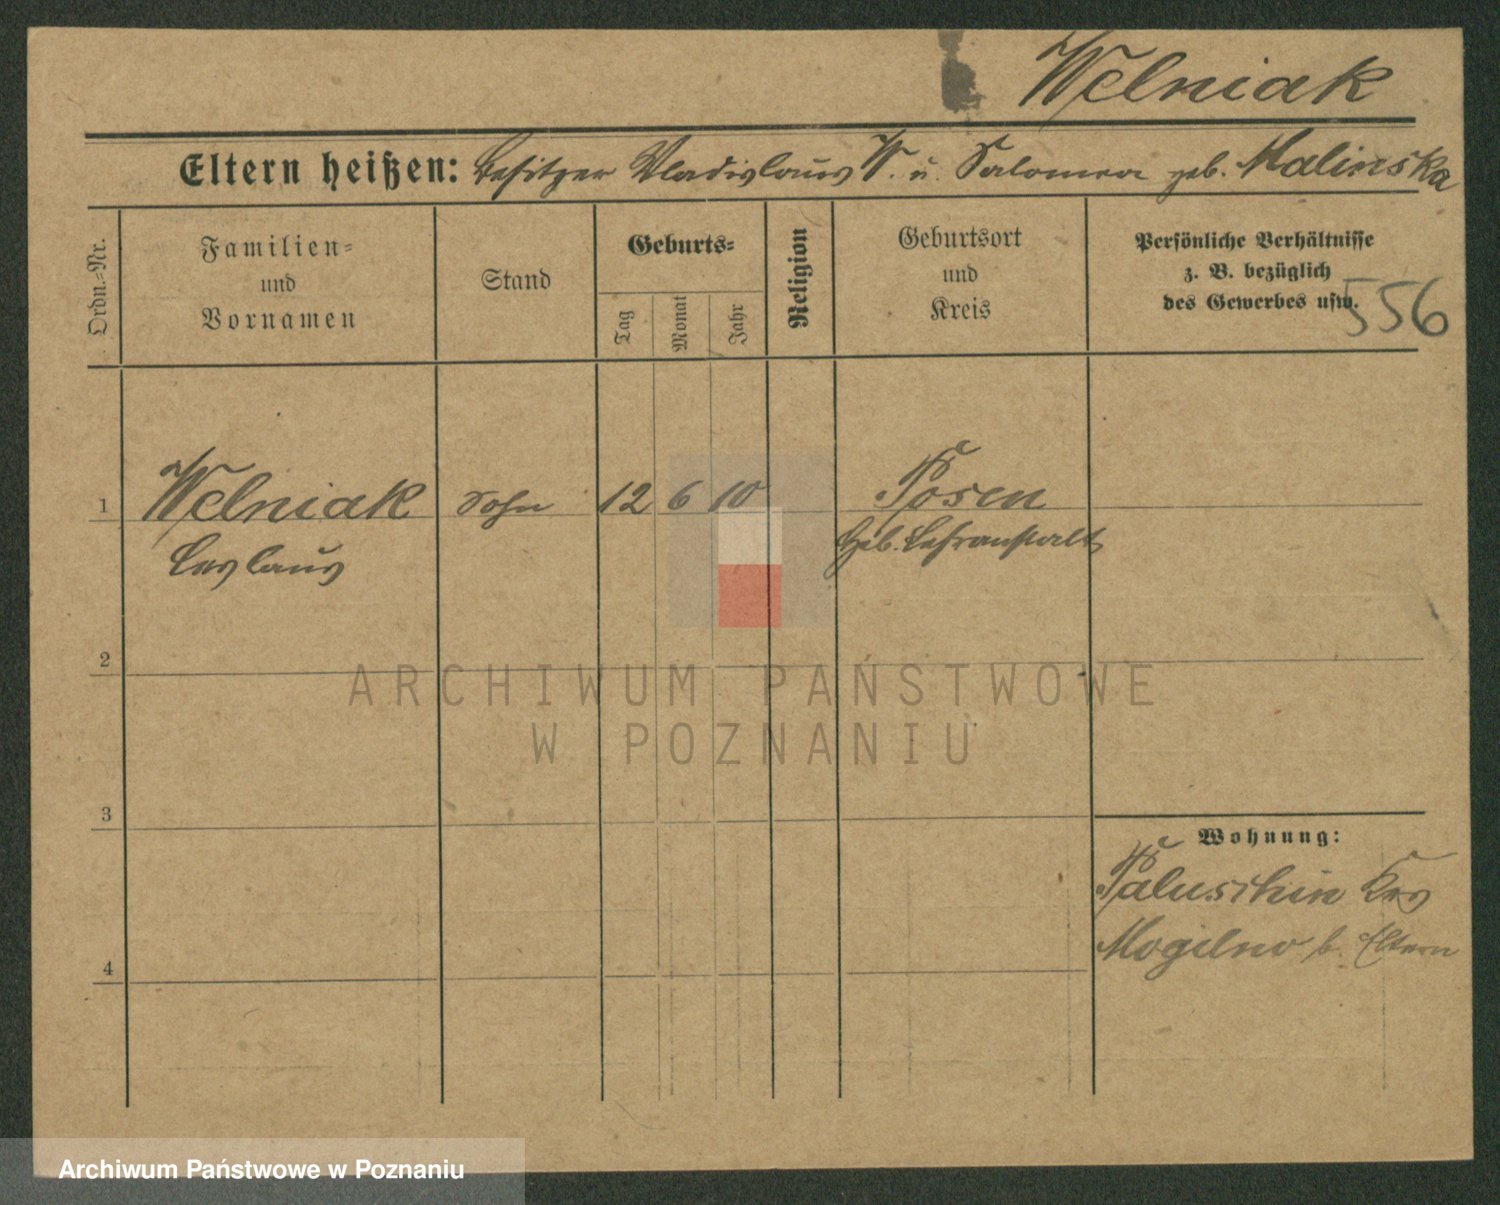 Welniak
Eltern heißen: Besitzer Wladislaus W. u. Salomea geb. Malinska
Ordn.-Nr.
Familien-
und
Vornamen
Stand
Geburts-
Tag
Monat
Jahr
Religion
Geburtsort
und
Kreis
Persönliche Verhältnisse
z. B. bezüglich
des Gewerbes usw.
556
1 Welniak Sohn 12 6 10 Posen
Ceslaus Heb. Lehranstalt
2
3
Wohnung:
Paluschin Krs
Mogilno b. Eltern
4
ARCHIWUM PAŃSTWOWE
W POZNANIU
Archiwum Państwowe w Poznaniu